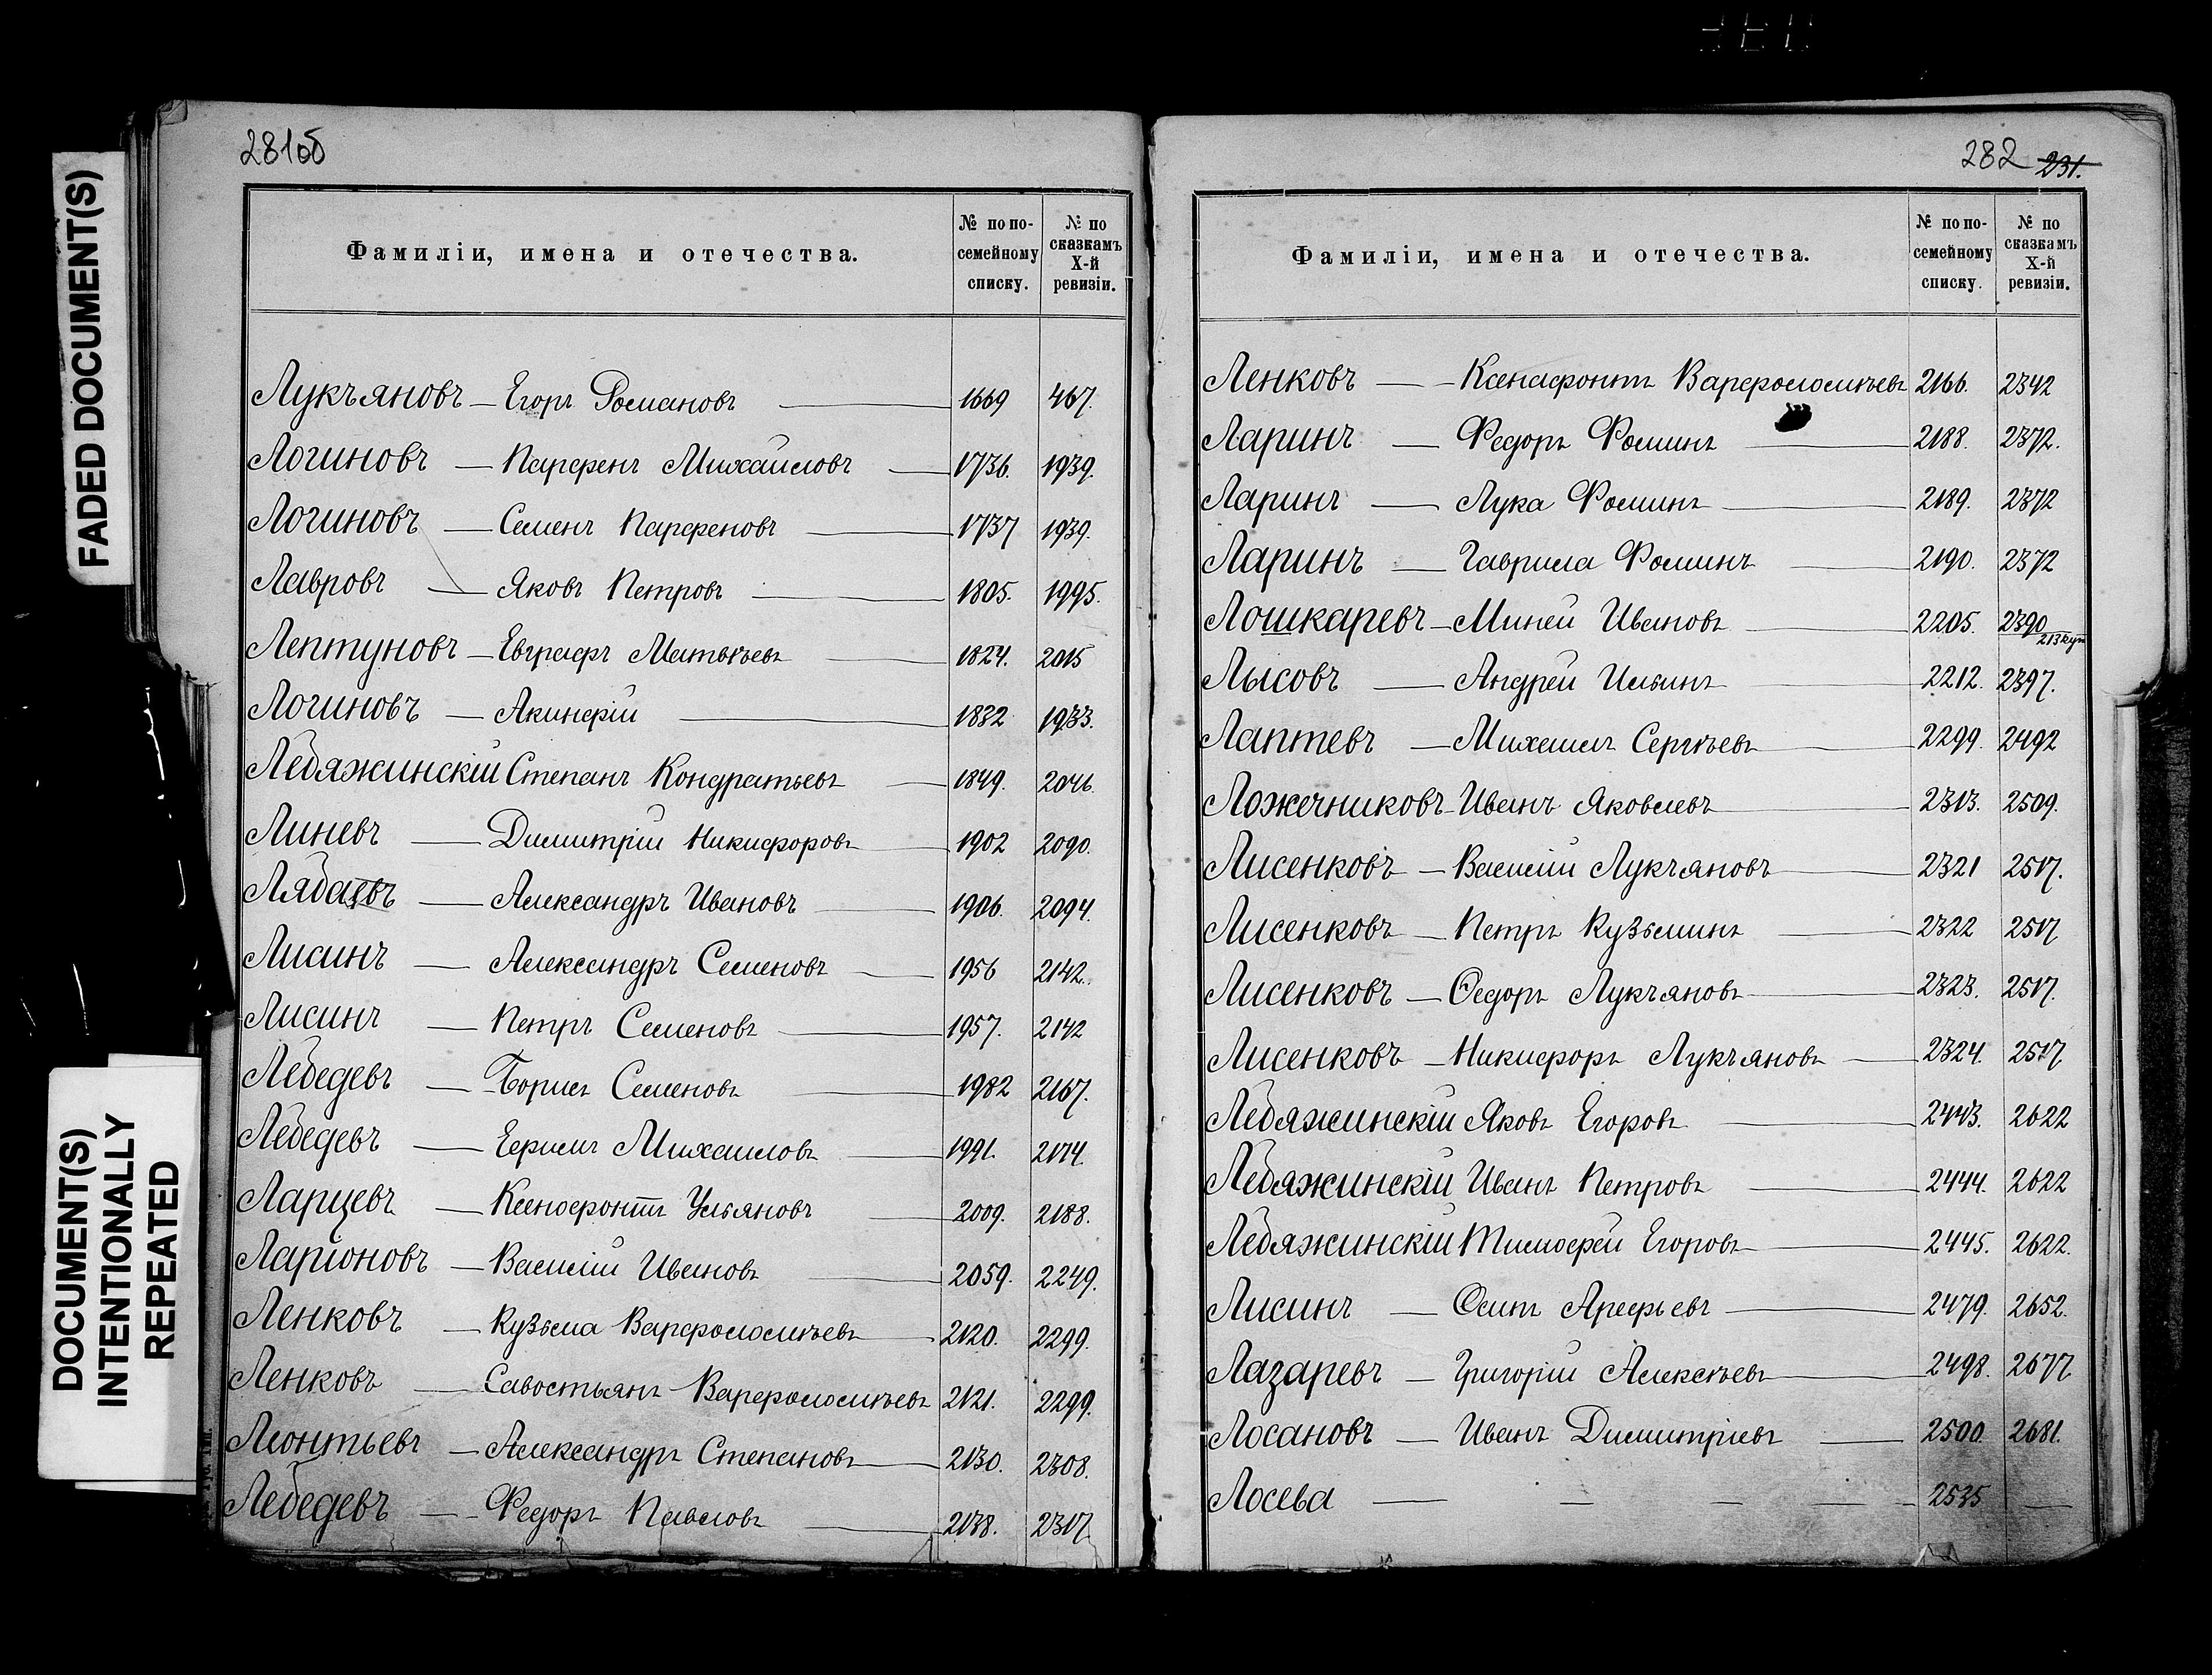 FADED DOCUMENT(S)
DOCUMENT(S)
INTENTIONALLY
REPEATED
281об
Фамиліи, имена и отечества. № по по-семейному списку. № по сказкамъ X-й ревизіи.
Лукъяновъ — Егоръ Романовъ — 1669 467.
Логиновъ — Парфенъ Михайловъ — 1736. 1939.
Логиновъ — Семенъ Парфеновъ — 1737 1939.
Лавровъ — Яковъ Петровъ — 1805. 1995.
Лептуновъ — Евграфъ Матвѣевъ — 1824. 2015
Логиновъ — Акинфій — 1832 1933.
Лебяжинскій Степанъ Кондратьевъ — 1849. 2046.
Линевъ — Димитрій Никифоровъ — 1902 2090.
Лябаевъ — Александръ Ивановъ — 1906. 2094.
Лисинъ — Александръ Семеновъ — 1956 2142.
Лисинъ — Петръ Семеновъ — 1957. 2142
Лебедевъ — Борисъ Семеновъ — 1982 2167.
Лебедевъ — Ермилъ Михайловъ — 1991. 2174.
Ларцевъ — Ксенофонтъ Ульяновъ — 2009. 2188.
Ларіоновъ — Василій Ивановъ — 2059. 2249.
Ленковъ — Кузьма Варфоломѣевъ — 2120. 2299.
Ленковъ — Савостьянъ Варфоломѣевъ 2121. 2299.
Леонтьевъ — Александръ Степановъ — 2130. 2308.
Лебедевъ — Федоръ Павловъ — 2138. 2317.
282 231.
Фамиліи, имена и отечества. № по по-семейному списку. № по сказкамъ X-й ревизіи.
Ленковъ — Ксенафонтъ Варфоломѣевъ 2166. 2342
Ларинъ — Федоръ Фоминъ — 2188. 2372.
Ларинъ — Лука Фоминъ — 2189. 2372
Ларинъ — Гаврила Фоминъ — 2190. 2372
Лошкаревъ — Миней Ивановъ — 2205. 2390 213куп
Лысовъ — Андрей Ильинъ — 2212. 2397.
Лаптевъ — Михаилъ Сергѣевъ — 2299. 2492
Ложечниковъ — Иванъ Яковлевъ — 2313. 2509.
Лисенковъ — Василій Лукъяновъ — 2321 2517.
Лисенковъ — Петръ Кузьминъ — 2322 2517
Лисенковъ — Ѳедоръ Лукъяновъ — 2323. 2517.
Лисенковъ — Никифоръ Лукъяновъ — 2324. 2517
Лебяжинскій Яковъ Егоровъ — 2443. 2622
Лебяжинскій Иванъ Петровъ — 2444. 2622
Лебяжинскій Тимофей Егоровъ — 2445. 2622.
Лисинъ — Осипъ Арефьевъ — 2479. 2652.
Лазаревъ — Григорій Алексѣевъ — 2498. 2677
Лосановъ — Иванъ Димитріевъ — 2500. 2681.
Лосева — — — — 2535 —